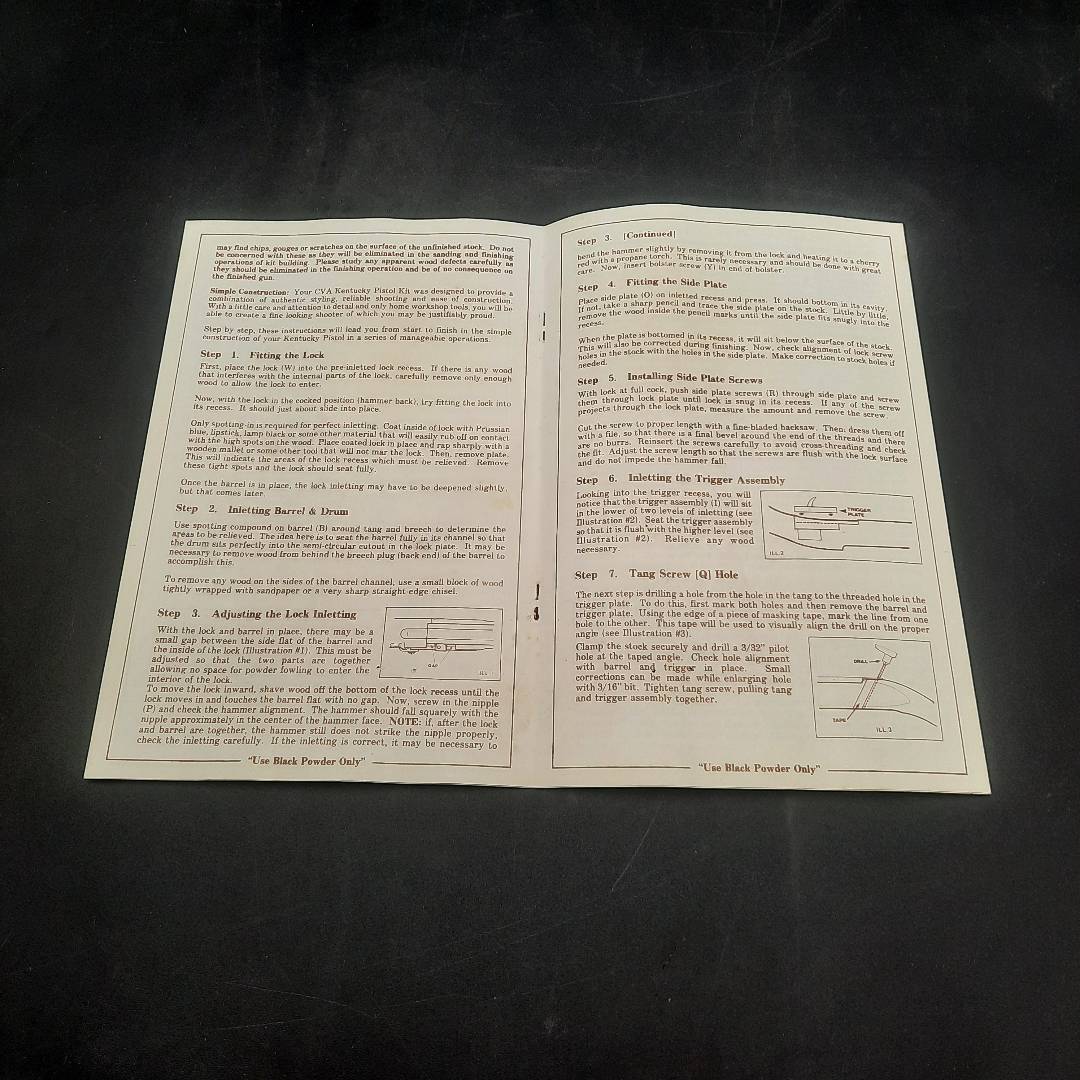 may find chips, gouges or scratches on the surface of the unfinished stock. Do not
be concerned with these as they will be eliminated in the sanding and finishing
operations of kit building. Please study any apparent wood defects carefully as
they should be eliminated in the finishing operation and be of no consequence on
the finished gun.
Simple Construction: Your CVA Kentucky Pistol Kit was designed to provide a
combination of authentic styling, reliable shooting and ease of construction.
With a little care and attention to detail and only home workshop tools, you will be
able to create a fine looking shooter of which you may be justifiably proud.
Step by step, these instructions will lead you from start to finish in the simple
construction of your Kentucky Pistol in a series of manageable operations.
Step 1. Fitting the Lock
First, place the lock (W) into the pre-inletted lock recess. If there is any wood
that interferes with the internal parts of the lock, carefully remove only enough
wood to allow the lock to enter.
Now, with the lock in the cocked position (hammer back), try fitting the lock into
its recess. It should just about slide into place.
Only spotting-in is required for perfect inletting. Coat inside of lock with Prussian
blue, lipstick, lamp black or some other material that will easily rub off on contact
with the high spots on the wood. Place coated lock in place and rap sharply with a
wooden mallet or some other tool that will not mar the lock. Then, remove plate.
This will indicate the areas of the lock recess which must be relieved. Remove
these tight spots and the lock should seat fully.
Once the barrel is in place, the lock inletting may have to be deepened slightly,
but that comes later.
Step 2. Inletting Barrel & Drum
Use spotting compound on barrel (B) around tang and breech to determine the
areas to be relieved. The idea here is to seat the barrel fully in its channel so that
the drum sits perfectly into the semi-circular cutout in the lock plate. It may be
necessary to remove wood from behind the breech plug (back end) of the barrel to
accomplish this.
To remove any wood on the sides of the barrel channel, use a small block of wood
tightly wrapped with sandpaper or a very sharp straight-edge chisel.
Step 3. Adjusting the Lock Inletting
With the lock and barrel in place, there may be a
small gap between the side flat of the barrel and
the inside of the lock (Illustration #1). This must be
adjusted so that the two parts are together
allowing no space for powder fowling to enter the
interior of the lock.
GAP
To move the lock inward, shave wood off the bottom of the lock recess until the
lock moves in and touches the barrel flat with no gap. Now, screw in the nipple
(P) and check the hammer alignment. The hammer should fall squarely with the
nipple approximately in the center of the hammer face. NOTE: if, after the lock
and barrel are together, the hammer still does not strike the nipple properly,
check the inletting carefully. If the inletting is correct, it may be necessary to
"Use Black Powder Only"
Step 3. [Continued]
bend the hammer slightly by removing it from the lock and heating it to a cherry
red with a propane torch. This is rarely necessary and should be done with great
care. Now, insert bolster screw (Y) in end of bolster.
Step 4. Fitting the Side Plate
Place side plate (O) on inletted recess and press. It should bottom in its cavity.
If not, take a sharp pencil and trace the side plate on the stock. Little by little,
remove the wood inside the pencil marks until the side plate fits snugly into the
recess.
When the plate is bottomed in its recess, it will sit below the surface of the stock.
This will also be corrected during finishing. Now, check alignment of lock screw
holes in the stock with the holes in the side plate. Make correction to stock holes if
needed.
Step 5. Installing Side Plate Screws
With lock at full cock, push side plate screws (R) through side plate and screw
them through lock plate until lock is snug in its recess. If any of the screw
projects through the lock plate, measure the amount and remove the screw.
Cut the screw to proper length with a fine-bladed hacksaw. Then, dress them off
with a file, so that there is a final bevel around the end of the threads and there
are no burrs. Reinsert the screws carefully to avoid cross-threading and check
the fit. Adjust the screw length so that the screws are flush with the lock surface
and do not impede the hammer fall.
Step 6. Inletting the Trigger Assembly
Looking into the trigger recess, you will
notice that the trigger assembly (I) will sit
in the lower of two levels of inletting (see
Illustration #2). Seat the trigger assembly
so that it is flush with the higher level (see
Illustration #2). Relieve any wood
necessary.
TRIGGER
PLATE
ILL.2
Step 7. Tang Screw [Q] Hole
The next step is drilling a hole from the hole in the tang to the threaded hole in the
trigger plate. To do this, first mark both holes and then remove the barrel and
trigger plate. Using the edge of a piece of masking tape, mark the line from one
hole to the other. This tape will be used to visually align the drill on the proper
angle (see Illustration #3).
Clamp the stock securely and drill a 3/32" pilot
hole at the taped angle. Check hole alignment
with barrel and trigger in place. Small
corrections can be made while enlarging hole
with 3/16" bit. Tighten tang screw, pulling tang
and trigger assembly together.
DRILL
TAPE
ILL.3
"Use Black Powder Only"